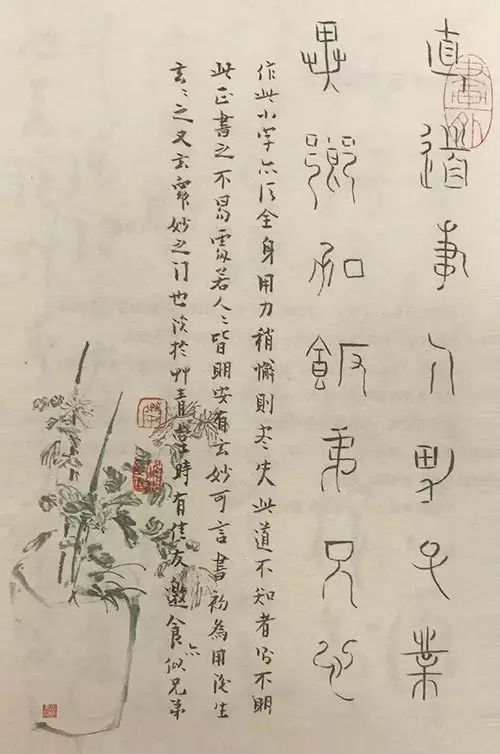 直道事人男子業
異鄉加飯弟兄心
作此小字亦須全身用力稍懈則盡失此道不知者不明
此正書之不易處若人〻皆明安有玄妙可言書初為用後生
玄〻之又玄眾妙之門也於艸青堂時有佳友邀食亦似兄弟